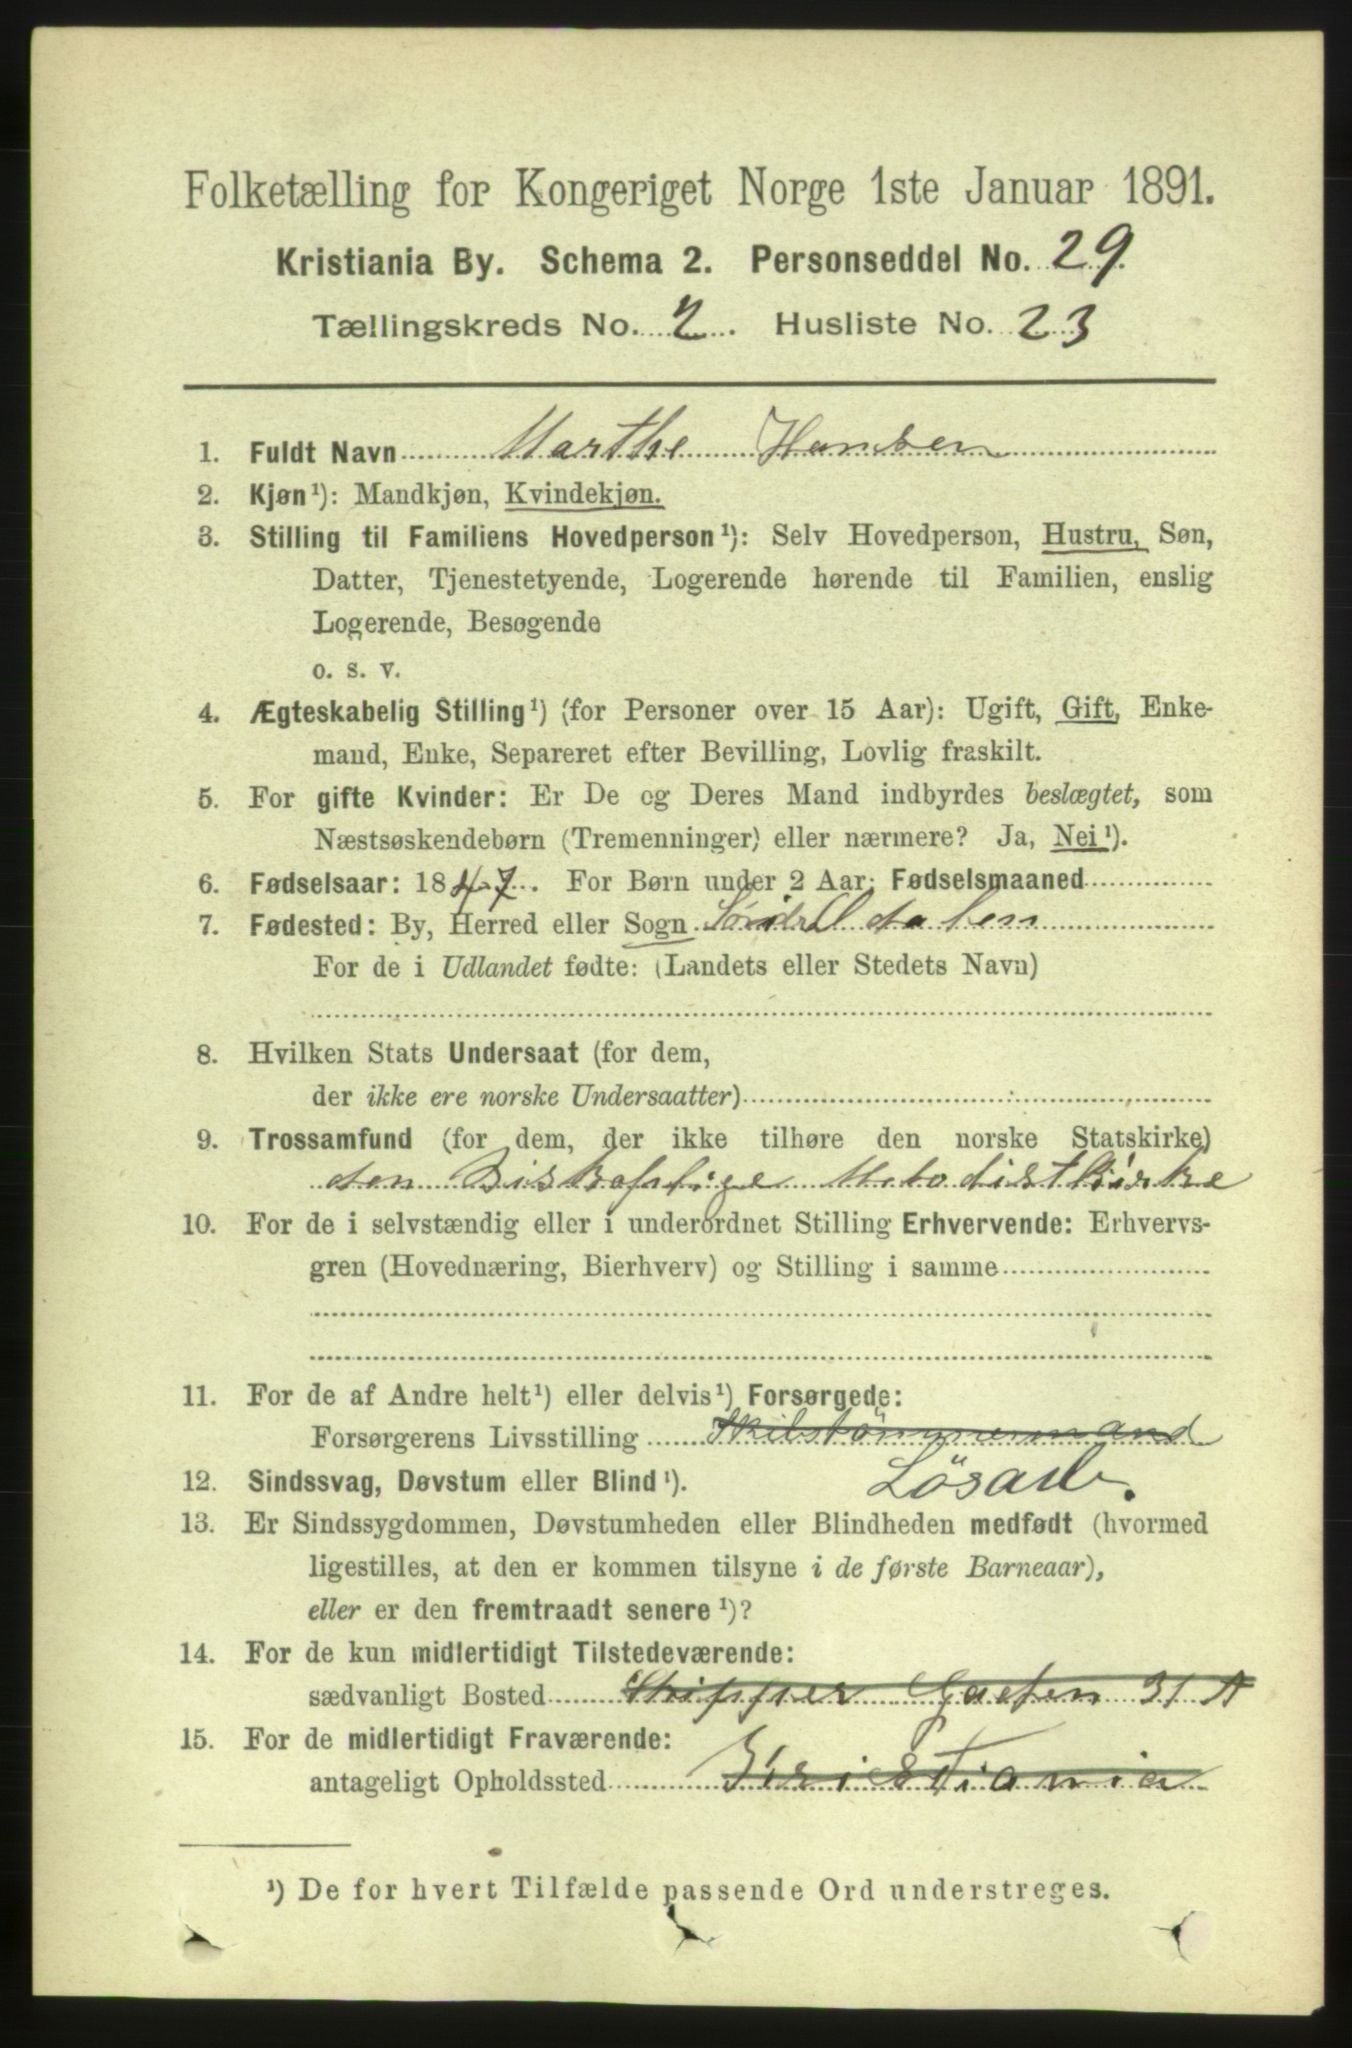 Folketælling for Kongeriget Norge 1ste Januar 1891.
Kristiania By. Schema 2. Personseddel No. 29.
Tællingskreds No. 2. Husliste No. 23
1. Fuldt Navn Marthe Hansen
2. Kjøn¹): Mandkjøn, Kvindekjøn.
3. Stilling til Familiens Hovedperson¹): Selv Hovedperson, Hustru, Søn,
Datter, Tjenestetyende, Logerende hørende til Familien, enslig
Logerende, Besøgende
o. s. v.
4. Ægteskabelig Stilling¹) (for Personer over 15 Aar): Ugift, Gift, Enke-
mand, Enke, Separeret efter Bevilling, Lovlig fraskilt.
5. For gifte Kvinder: Er De og Deres Mand indbyrdes beslægtet, som
Næstsøskendebørn (Tremenninger) eller nærmere? Ja, Nei¹).
6. Fødselsaar: 1847. For Børn under 2 Aar: Fødselsmaaned
7. Fødested: By, Herred eller Sogn
For de i Udlandet fødte: (Landets eller Stedets Navn)
8. Hvilken Stats Undersaat (for dem,
der ikke ere norske Undersaatter)
9. Trossamfund (for dem, der ikke tilhøre den norske Statskirke)
den Biskoplige Metodistkirke
10. For de i selvstændig eller i underordnet Stilling Erhvervende: Erhvervs-
gren (Hovednæring, Bierhverv) og Stilling i samme
11. For de af Andre helt¹) eller delvis¹) Forsørgede:
Forsørgerens Livsstilling
12. Sindssvag, Døvstum eller Blind¹). Lösarb.
13. Er Sindssygdommen, Døvstumheden eller Blindheden medfødt (hvormed
ligestilles, at den er kommen tilsyne i de første Barneaar),
eller er den fremtraadt senere¹)?
14. For de kun midlertidigt Tilstedeværende:
sædvanligt Bosted Skipper Gaden 31 A
15. For de midlertidigt Fraværende:
antageligt Opholdssted Kristiania
¹) De for hvert Tilfælde passende Ord understreges.